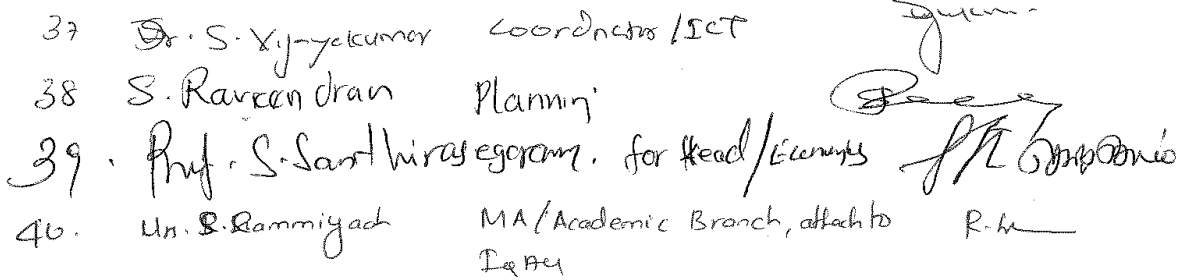 37 Dr. S. Vijayakumar Coordinator/ICT
38 S. Raveendran Planning
39. Prof. S. Santhirasegaram. for Head/Economics
40. S. Rammiyach MA/Academic Branch, attach to R.
IQAU